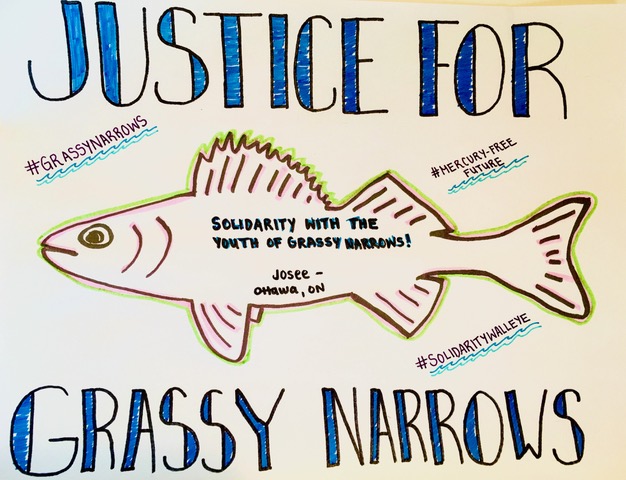 JUSTICE FOR
#GRASSYNARROWS
#MERCURY-FREE
FUTURE
SOLIDARITY WITH THE
YOUTH OF GRASSY NARROWS!
Josee -
Ottawa, ON
#SOLIDARITYWALLEYE
GRASSY NARROWS